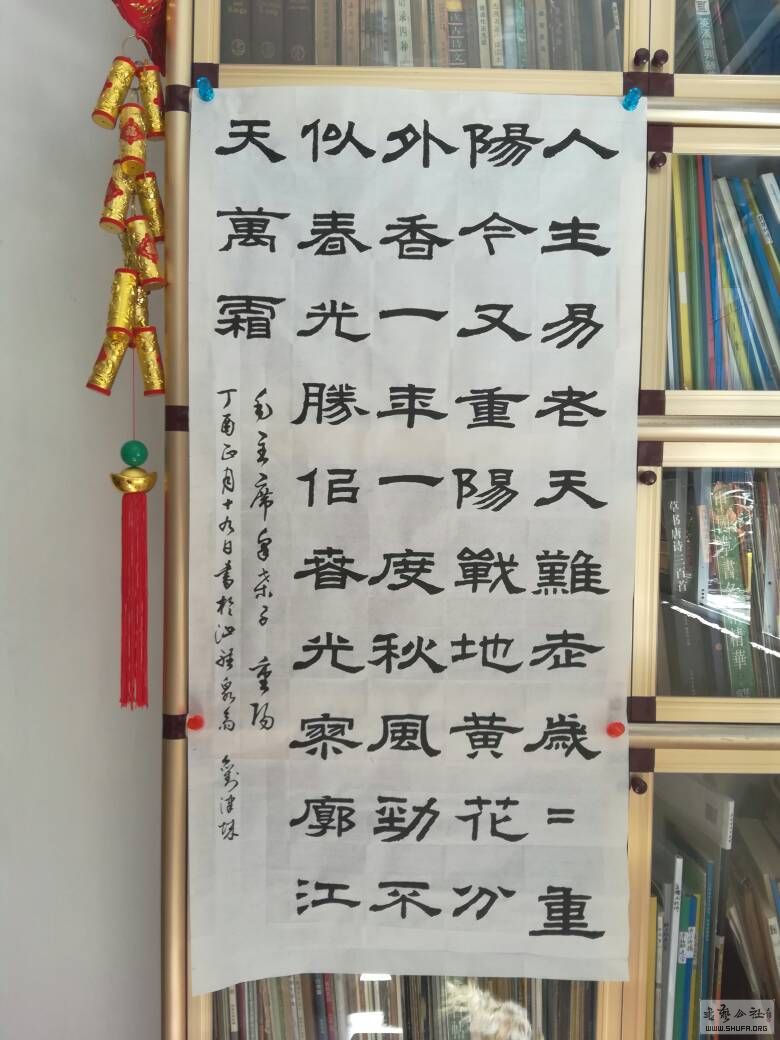 人生易老天難老歲=重
陽今又重陽戰地黄花分
外香一年一度秋風勁不
似春光勝佀春光寥廓江
天萬霜
毛主席采桑子 重陽
丁酉正月十九日書於
草书唐詩三百首
书艺公社
WWW.SHUFA.ORG